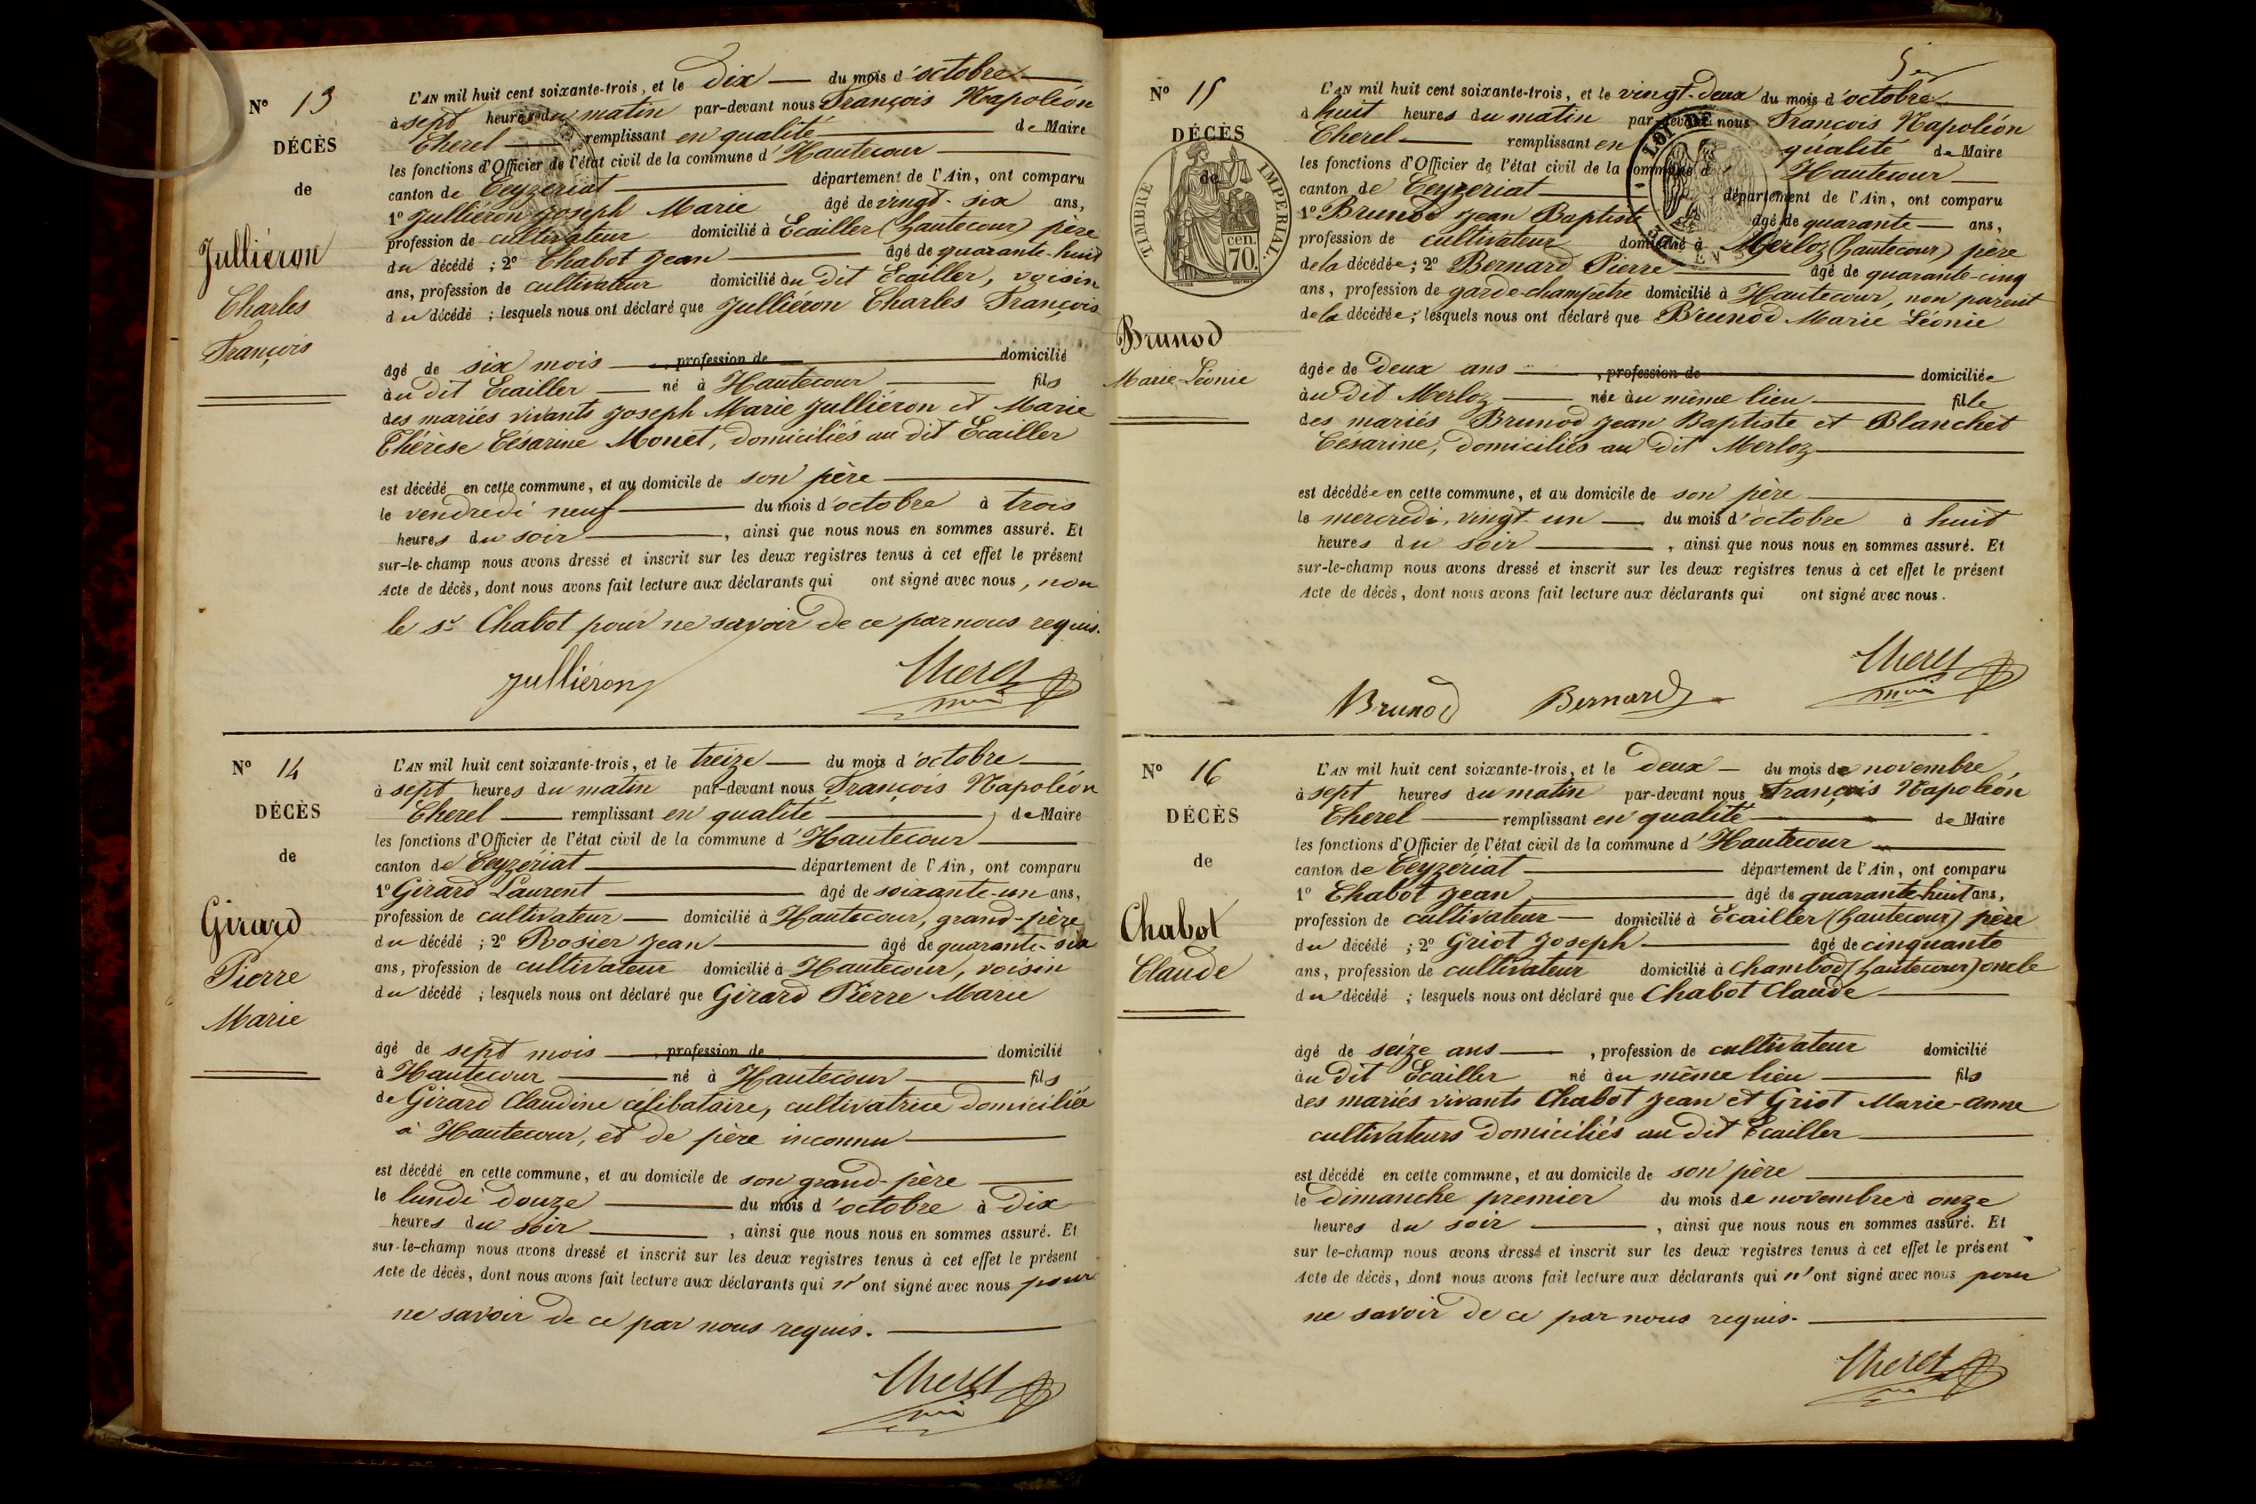 N° 13
DÉCÈS
de
Julliéron
Charles
François
L'AN mil huit cent soixante-trois, et le dix du mois d'octobre
à sept heures du matin par-devant nous François Napoléon
Cherel remplissant en qualité de Maire
les fonctions d'Officier de l'état civil de la commune d'Hautecour
canton de Ceyzeriat département de l'Ain, ont comparu
1° Julliéron Joseph Marie âgé de vingt-six ans,
profession de cultivateur domicilié à Ecailler (hautecour) père
du décédé ; 2° Chabot Jean âgé de quarante-huit
ans, profession de cultivateur domicilié au dit Ecailler, voisin
du décédé ; lesquels nous ont déclaré que Julliéron Charles François
âgé de six mois , profession de domicilié
au dit Ecailler né à Hautecour fils
des mariés vivants Joseph Marie Julliéron et Marie
Thérèse Césarine Monet, domiciliés au dit Ecailler
est décédé en cette commune, et au domicile de son père
le vendredi neuf du mois d'octobre à trois
heures du soir , ainsi que nous nous en sommes assuré. Et
sur-le-champ nous avons dressé et inscrit sur les deux registres tenus à cet effet le présent
Acte de décès, dont nous avons fait lecture aux déclarants qui ont signé avec nous, non
le sr Chabot pour ne savoir de ce par nous requis.
Julliéron Cherel
N° 14
DÉCÈS
de
Girard
Pierre
Marie
L'AN mil huit cent soixante-trois, et le treize du mois d'octobre
à sept heures du matin par-devant nous François Napoléon
Cherel remplissant en qualité de Maire
les fonctions d'Officier de l'état civil de la commune d'Hautecour
canton de Ceyzériat département de l'Ain, ont comparu
1° Girard Laurent âgé de soixante-un ans,
profession de cultivateur domicilié à Hautecour, grand-père
du décédé ; 2° Rosier Jean âgé de quarante-six
ans, profession de cultivateur domicilié à Hautecour, voisin
du décédé ; lesquels nous ont déclaré que Girard Pierre Marie
âgé de sept mois , profession de domicilié
à Hautecour né à Hautecour fils
de Girard Claudine célibataire, cultivatrice domiciliée
à Hautecour, et de père inconnu
est décédé en cette commune, et au domicile de son grand-père
le lundi douze du mois d'octobre à dix
heures du soir , ainsi que nous nous en sommes assuré. Et
sur-le-champ nous avons dressé et inscrit sur les deux registres tenus à cet effet le présent
Acte de décès, dont nous avons fait lecture aux déclarants qui n'ont signé avec nous pour
ne savoir de ce par nous requis.
Cherel
N° 15
DÉCÈS
de
TIMBRE IMPERIAL.
cen.
70.
Brunod
Marie-Léonie
L'AN mil huit cent soixante-trois, et le vingt-deux du mois d'octobre
à huit heures du matin par-devant nous François Napoléon
Cherel remplissant en qualité de Maire
les fonctions d'Officier de l'état civil de la commune d'Hautecour
canton de Ceyzeriat département de l'Ain, ont comparu
1° Brunod Jean Baptiste âgé de quarante ans,
profession de cultivateur domicilié à Merloz (hautecour) père
de la décédée ; 2° Bernard Pierre âgé de quarante-cinq
ans, profession de garde-champêtre domicilié à Hautecour, non parent
de la décédée ; lesquels nous ont déclaré que Brunod Marie Léonie
âgée de deux ans , profession de domiciliée
au dit Merloz née au même lieu fille
des mariés Brunod Jean Baptiste et Blanchet
Cesarine, domiciliés au dit Merloz
est décédée en cette commune, et au domicile de son père
le mercredi, vingt-un du mois d'octobre à huit
heures du soir , ainsi que nous nous en sommes assuré. Et
sur-le-champ nous avons dressé et inscrit sur les deux registres tenus à cet effet le présent
Acte de décès, dont nous avons fait lecture aux déclarants qui ont signé avec nous.
Brunod Bernard Cherel
N° 16
DÉCÈS
de
Chabot
Claude
L'AN mil huit cent soixante-trois, et le deux du mois de novembre,
à sept heures du matin par-devant nous François Napoléon
Cherel remplissant en qualité de Maire
les fonctions d'Officier de l'état civil de la commune d'Hautecour
canton de Ceyzériat département de l'Ain, ont comparu
1° Chabot Jean âgé de quarante-huit ans,
profession de cultivateur domicilié à Ecailler (hautecour) père
du décédé ; 2° Griot Joseph âgé de cinquante
ans, profession de cultivateur domicilié à Chambod (hautecour) oncle
du décédé ; lesquels nous ont déclaré que Chabot Claude
âgé de seize ans , profession de cultivateur domicilié
au dit Ecailler né au même lieu fils
des mariés vivants Chabot Jean et Griot Marie-Anne
cultivateurs domiciliés au dit Ecailler
est décédé en cette commune, et au domicile de son père
le dimanche premier du mois de novembre à onze
heures du soir , ainsi que nous nous en sommes assuré. Et
sur le-champ nous avons dressé et inscrit sur les deux registres tenus à cet effet le présent
Acte de décès, dont nous avons fait lecture aux déclarants qui n'ont signé avec nous pour
ne savoir de ce par nous requis.
Cherel